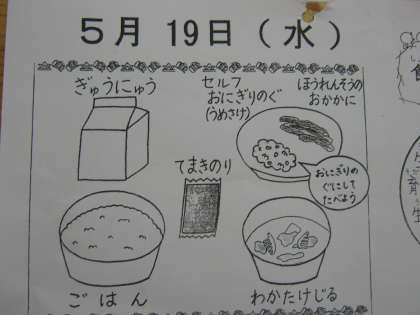 5月 19日 (水)
ぎゅうにゅう
セルフ
おにぎりのぐ
(うめさけ)
ほうれんそうの
おかかに
てまきのり
おにぎりの
ぐにして
たべよう
ごはん
わかたけじる